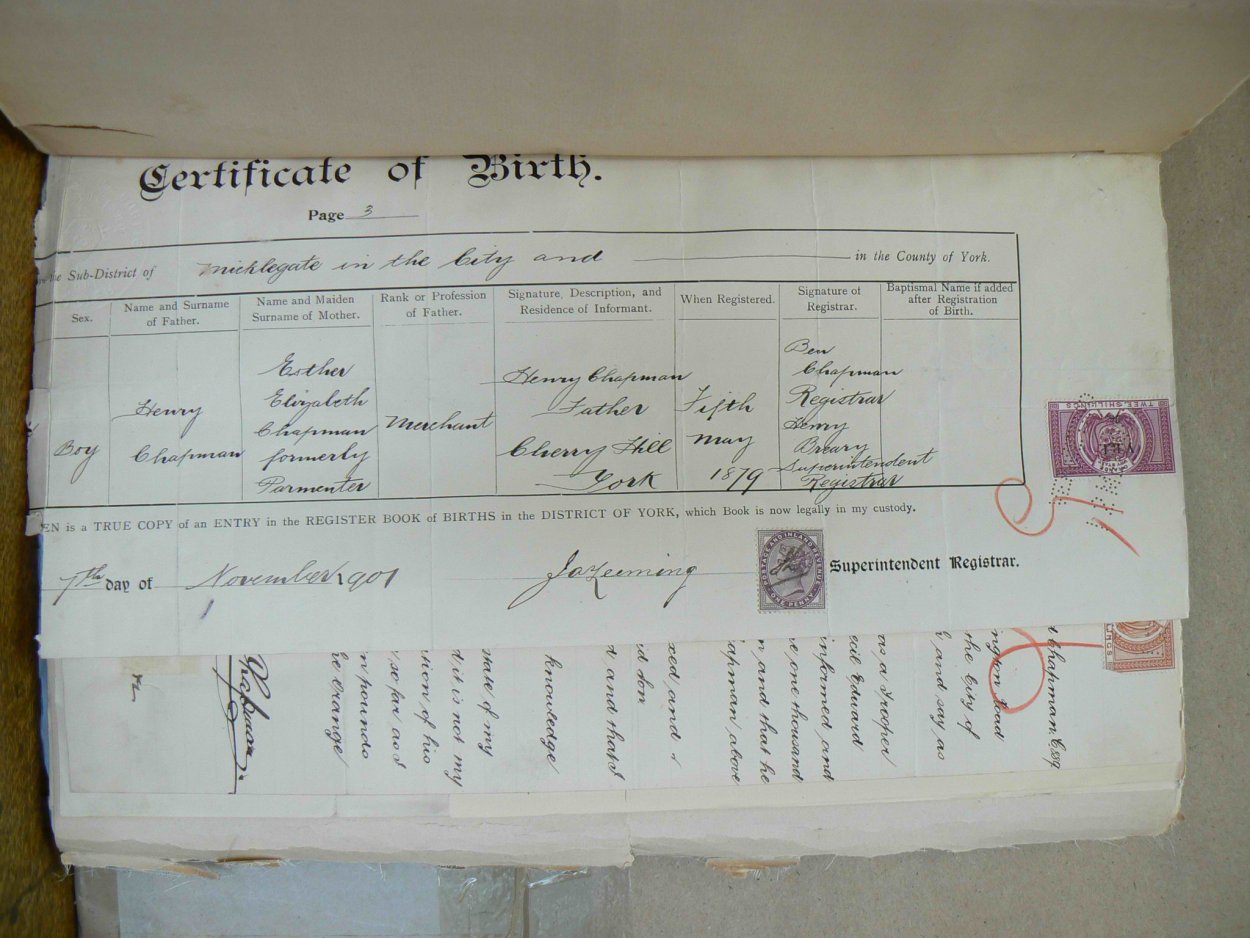 Certificate of Birth.
Page 3
the Sub-District of Micklegate in the City and in the County of York.
Sex.
Name and Surname
of Father.
Name and Maiden
Surname of Mother.
Rank or Profession
of Father.
Signature, Description, and
Residence of Informant.
When Registered.
Signature of
Registrar.
Baptismal Name if added
after Registration
of Birth.
Boy
Henry
Chapman
Esther
Elizabeth
Chapman
formerly
Parmenter
Merchant
Henry Chapman
Father
Cherry Hill
York
Fifth
May
1879
Ben
Chapman
Registrar
Henry
Breary
Superintendent
Registrar
EN is a TRUE COPY of an ENTRY in the REGISTER BOOK of BIRTHS in the DISTRICT OF YORK, which Book is now legally in my custody.
7th day of November 1901
Superintendent Registrar.
POSTAGE AND INLAND REVENUE
ONE PENNY
Chapman Esq
ngton Road
the City of
and say as
as a Trooper
cil Edward
informed and
e one thousand
n and that he
apman above
xed and
d son
d and that I
knowledge
state of my
d it is not my
sion of his
so far as I
n pounds
he Orange
Chapman